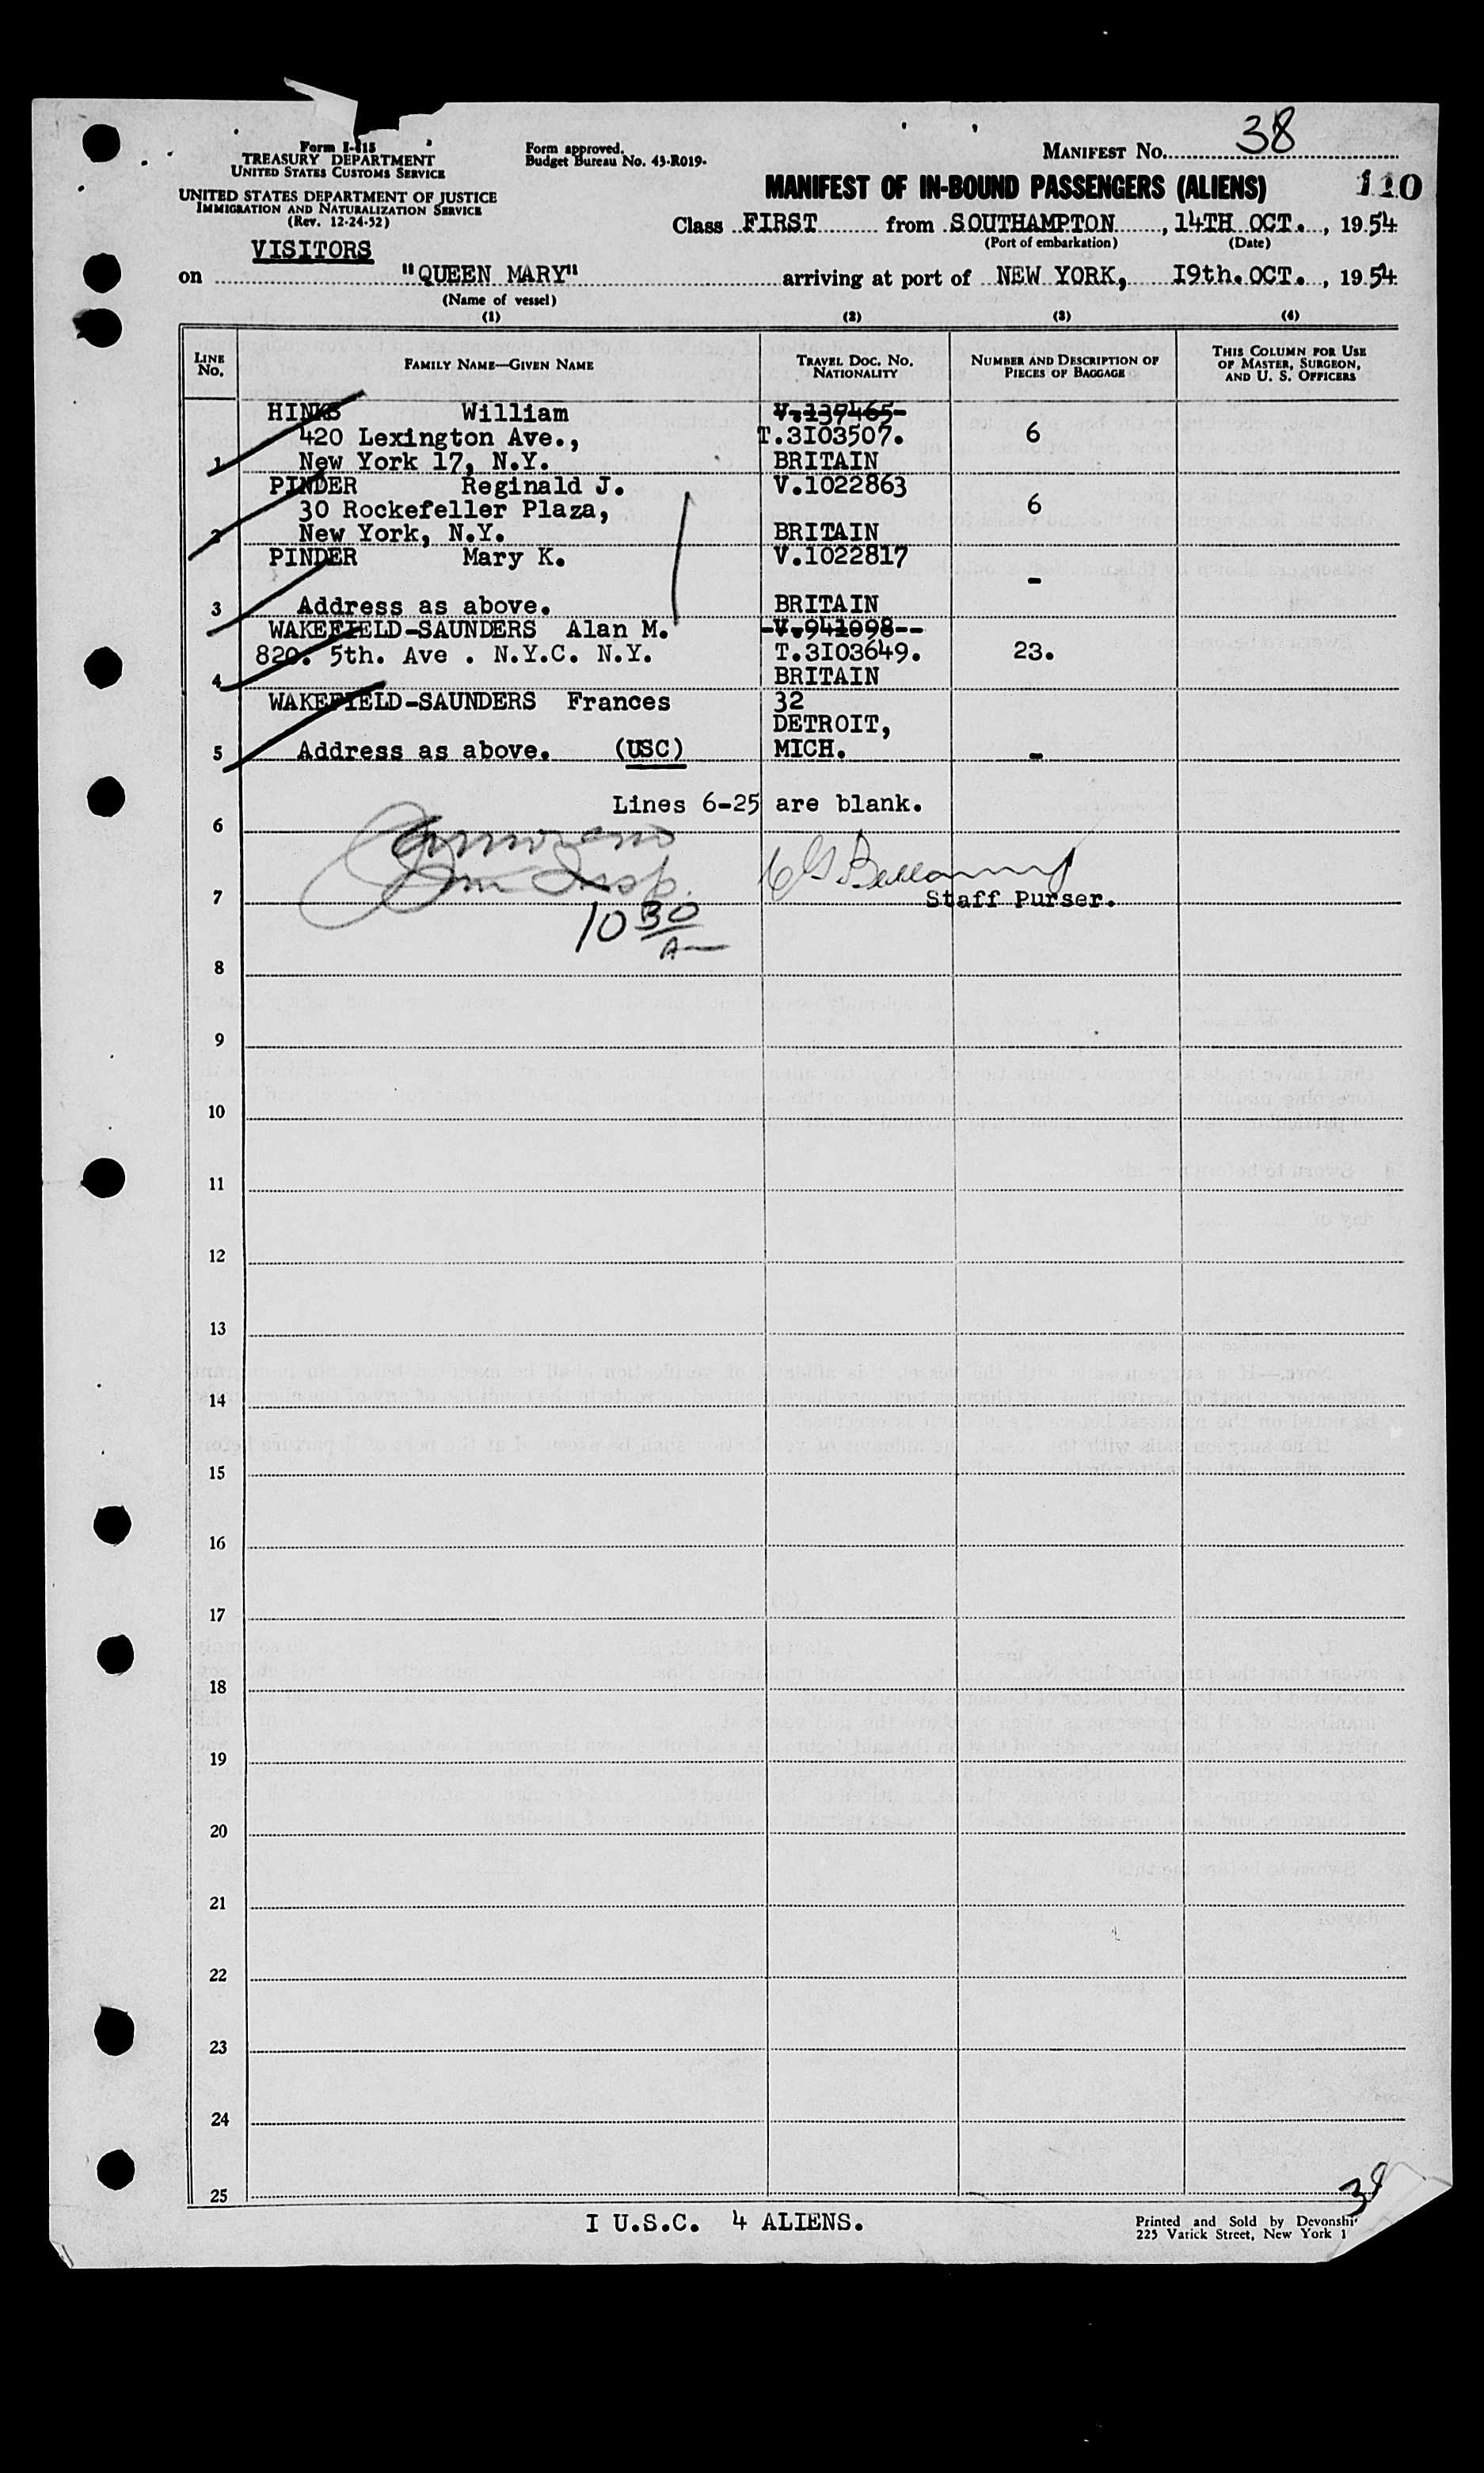 Form I-415
TREASURY DEPARTMENT
UNITED STATES CUSTOMS SERVICE
UNITED STATES DEPARTMENT OF JUSTICE
IMMIGRATION AND NATURALIZATION SERVICE
(Rev. 12-24-52)
Form approved.
Budget Bureau No. 43-R019.
MANIFEST No. 38
MANIFEST OF IN-BOUND PASSENGERS (ALIENS) 110
Class FIRST from SOUTHAMPTON, 14TH OCT., 1954
(Port of embarkation) (Date)
VISITORS
on "QUEEN MARY" arriving at port of NEW YORK, I9th.OCT., 1954
(Name of vessel)
(1) (2) (3) (4)
LINE No. FAMILY NAME—GIVEN NAME TRAVEL DOC. NO. NATIONALITY NUMBER AND DESCRIPTION OF PIECES OF BAGGAGE THIS COLUMN FOR USE OF MASTER, SURGEON, AND U. S. OFFICERS
HINKS William V.137465-
420 Lexington Ave., T.3I03507. 6
1 New York 17, N.Y. BRITAIN
PINDER Reginald J. V.1022863
30 Rockefeller Plaza, 6
2 New York, N.Y. BRITAIN
PINDER Mary K. V.1022817
-
3 Address as above. BRITAIN
WAKEFIELD-SAUNDERS Alan M. -V.941098--
820. 5th. Ave . N.Y.C. N.Y. T.3I03649. 23.
4 BRITAIN
WAKEFIELD-SAUNDERS Frances 32
DETROIT,
5 Address as above. (USC) MICH. -
Lines 6-25 are blank.
6
Imm Insp.
7 Staff Purser.
10 30
A—
8
9
10
11
12
13
14
15
16
17
18
19
20
21
22
23
24
25
38
I U.S.C. 4 ALIENS.
Printed and Sold by
225 Varick Street, New York 1